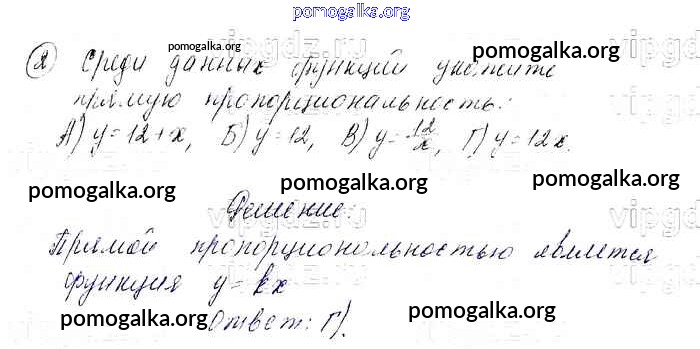 pomogalka.org
2) Среди данных функций укажите
pomogalka.org
pomogalka.org
прямую пропорциональность:
А) y=12+x, Б) y=12, В) y=12/x, Г) y=12x.
pomogalka.org
pomogalka.org
pomogalka.org
Решение:
Прямой пропорциональностью является
функция y=kx
pomogalka.org
pomogalka.org
Ответ: Г).
vipgdz.ru
vipgdz.ru